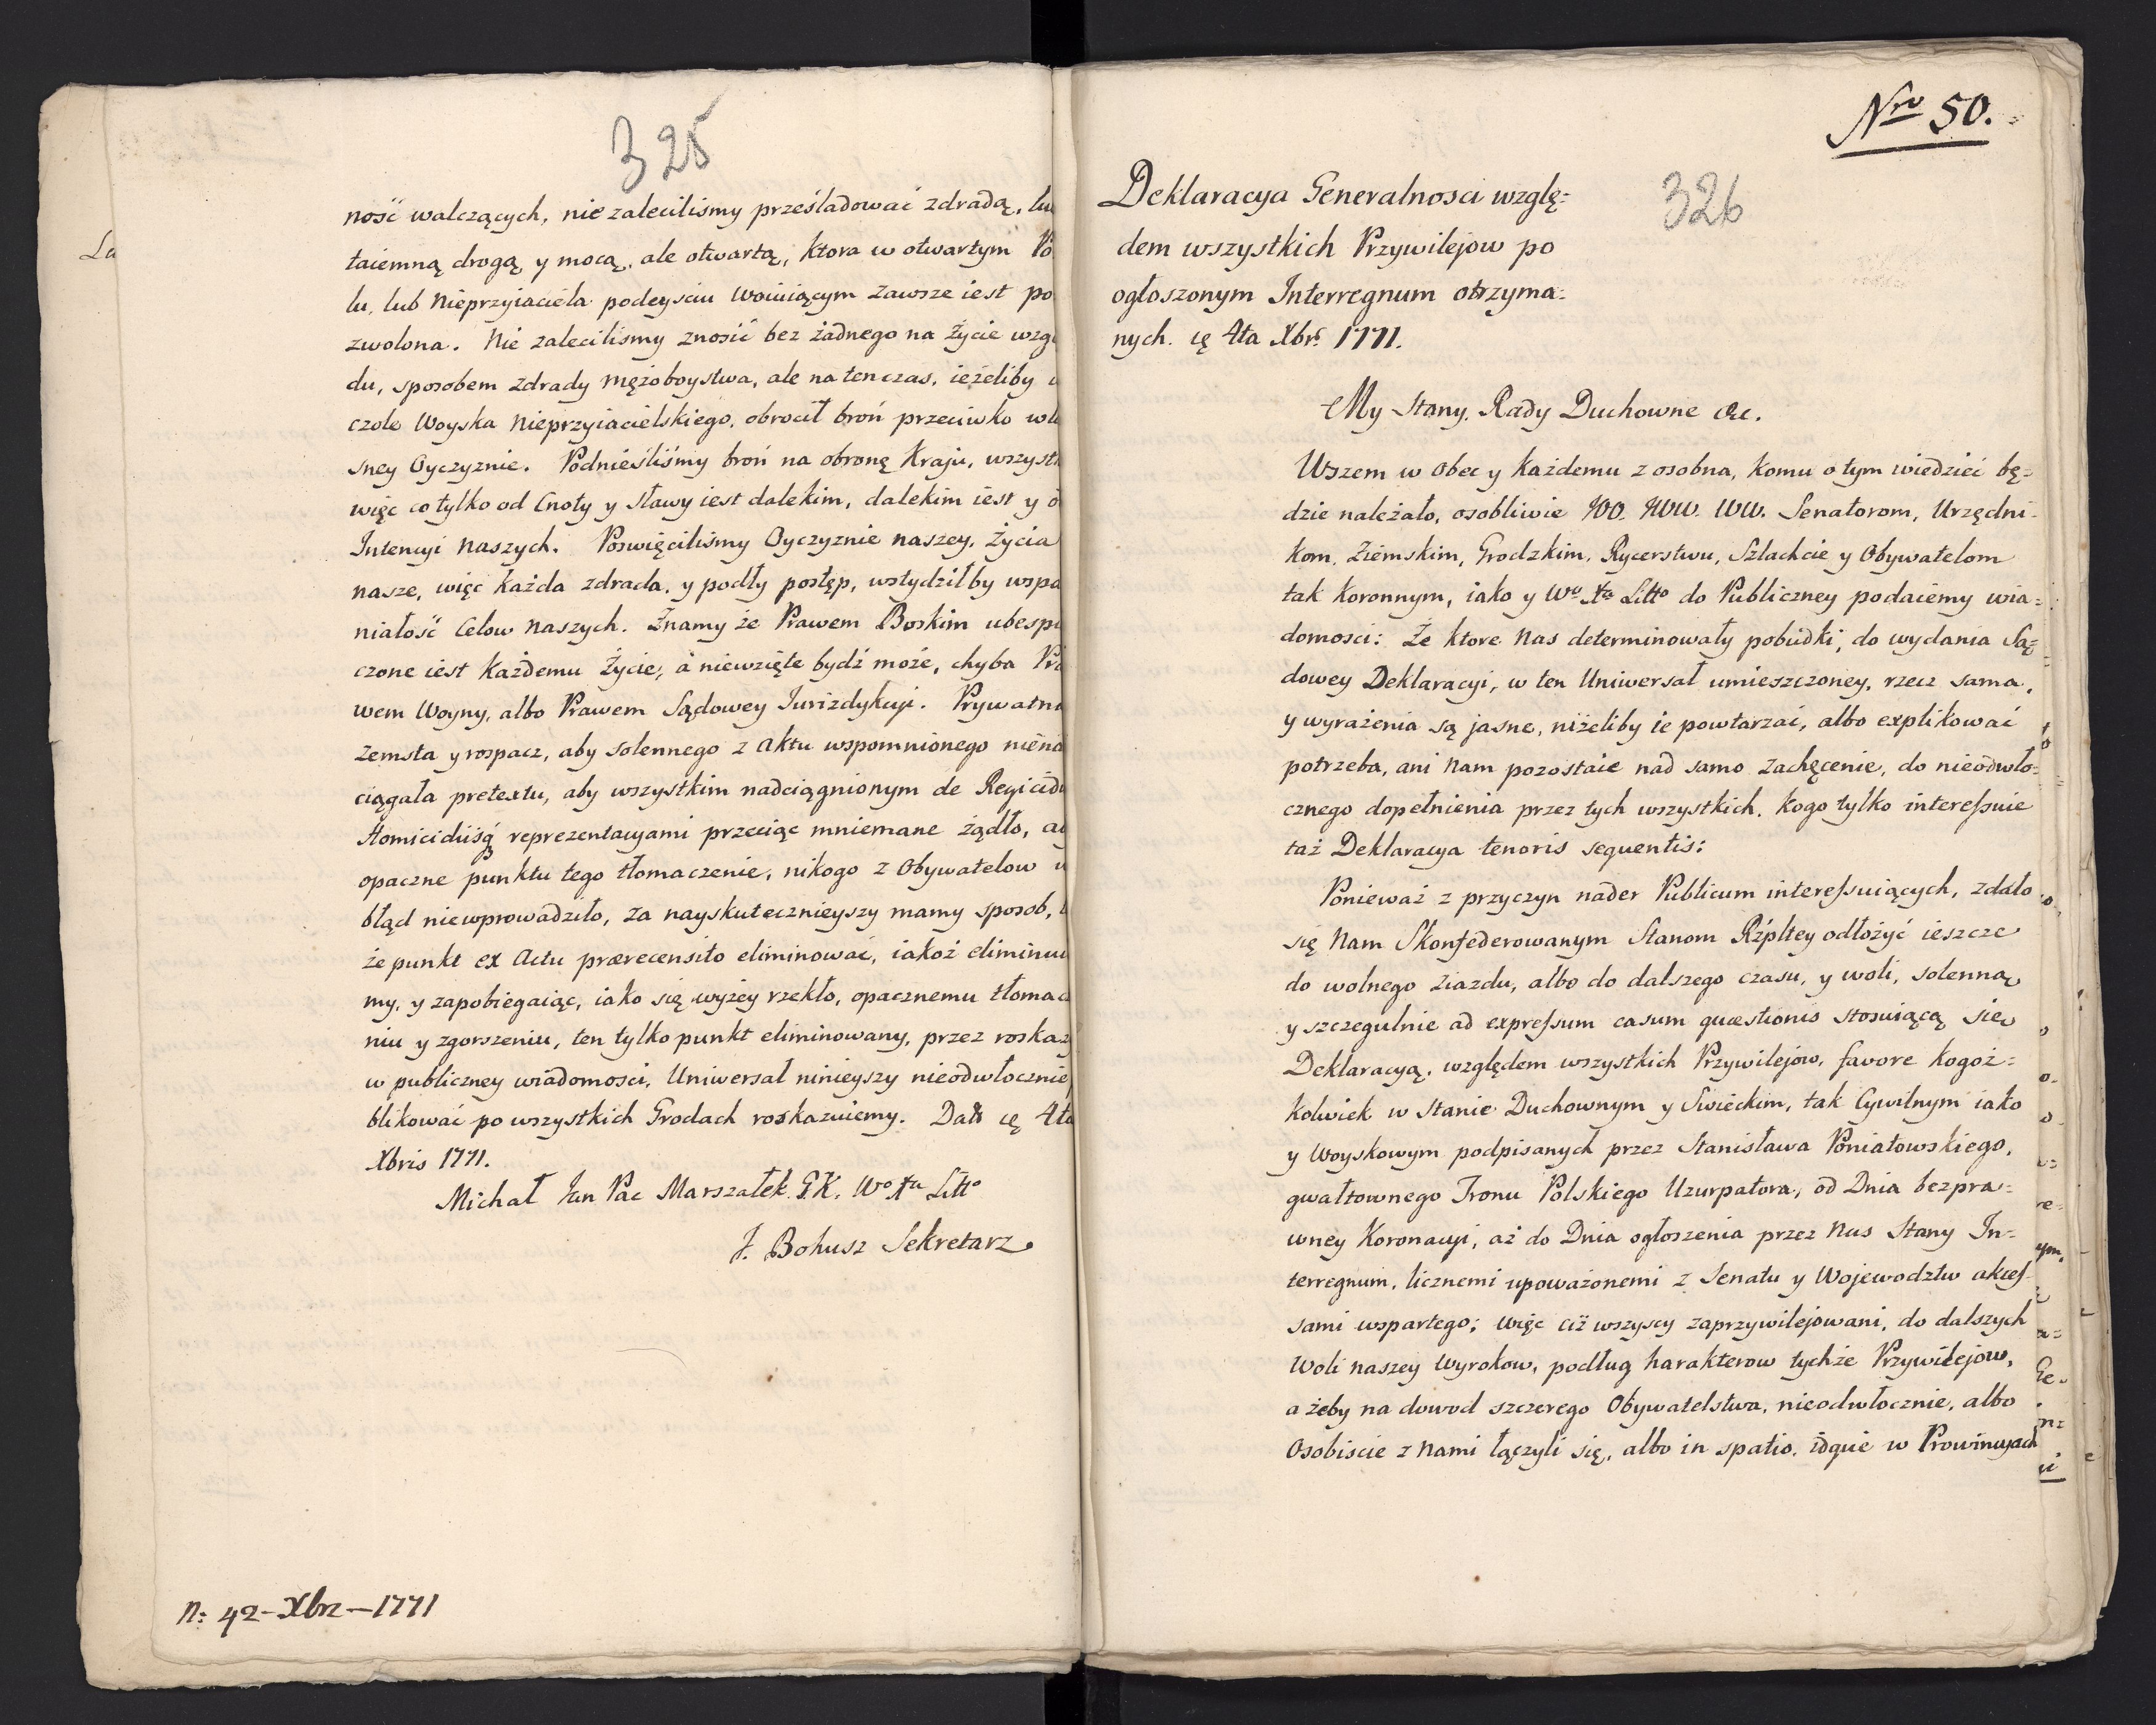 325
ność walczących, nie zaleciliśmy prześladować zdradą, lu
taiemną drogą y mocą, ale otwartą, ktora w otwartym Po
lu, lub Nieprzyiaciela podeysciu woiuiącym zawsze iest po
zwolona. Nie zaleciliśmy znosić bez żadnego na życie wzgl
du, sposobem zdrady mężoboystwa, ale na ten czas, ieżeliby
czole Woyska Nieprzyiacielskiego, obrocił broń przeciwko wła
sney Oyczyznie. Podnieśliśmy broń na obronę Kraju, wszyst
więc co tylko od Cnoty y Sławy iest dalekim, dalekim iest y o
Intencyi Naszych. Poswięciliśmy Oyczyznie naszey, życia
nasze, więc każda zdrada, y podły postęp, wstydziłby wspa
niałość Celow Naszych. Znamy że Prawem Boskim ubespi
czone iest każdemu życie, à niewzięte bydź może, chyba Pra
wem Woyny, albo Prawem Sądowey Jurizdykcyi. Prywatna
zemsta y rospacz, aby solennego z Aktu wspomnionego niena
ciągała pretextu, aby wszystkim nadciągnionym de Regicidii
Homicidiisq reprezentacyami przeciąc mniemane żądło, a
opaczne punktu tego tłomaczenie, nikogo z Obywatelow w
błąd niewprowadziło, za nayskutecznieyszy mamy sposob,
że punkt ex Actu prærecensito eliminować, iakoż eliminuie
my, y zapobiegaiąc, iako się wyżey rzekło, opacznemu tłomacze
niu y zgorszeniu, ten tylko punkt eliminowany, przez roskaz
w publiczney wiadomosci, Uniwersał ninieyszy nieodwłocznie
blikować po wszystkich Grodach roskazuiemy. Datt ię 4ta
Xbris 1771.
Michał Jan Pac Marszałek G.K. Wo Xa Litto
J. Bohusz Sekretarz
N: 42-Xbrz-1771
Nro 50.
326
Deklaracya Generalnosci wzglę=
dem wszystkich Przywilejow po
ogłoszonym Interregnum otrzyma=
nych. ię 4ta Xbr. 1771.
My Stany, Rady Duchowne &c.
Wszem w Obec y każdemu z osobna, komu o tym wiedzieć bę=
dzie należało, osobliwie JOO. JWW. WW. Senatorom, Urzędni-
kom, Ziemskim, Grodzkim, Rycerstwu, Szlachcie y Obywatelom
tak Koronnym, iako y Wo Xa Litto do Publiczney podaiemy wia=
domosci: Że ktore Nas determinowały pobudki, do wydania Są=
dowey Deklaracyi, w ten Uniwersał umieszczoney, rzecz sama,
y wyrażenia są jasne, niżeliby ie powtarzać, albo explikować
potrzeba, ani Nam pozostaie nad samo zachęcenie, do nieodwło=
cznego dopełnienia przez tych wszystkich, kogo tylko interessuie
taż Deklaracya tenoris sequentis:
Ponieważ z przyczyn nader Publicum interessuiących, zdało
się Nam Skonfederowanym Stanom Rzpltey odłożyć ieszcze
do wolnego Ziazdu, albo do dalszego czasu, y woli, solenną
y szczegulnie ad expressum casum quæstionis stosuiącą się
Deklaracyą, względem wszystkich Przywilejow, favore kogoż=
kolwiek w Stanie Duchownym y Swieckim, tak Cywilnym iako
y Woyskowym podpisanych przez Stanisława Poniatowskiego,
gwałtownego Tronu Polskiego Uzurpatora, od Dnia bezpra=
wney Koronacyi, aż do Dnia ogłoszenia przez Nas Stany In=
terregnum, licznemi upoważonemi z Senatu y Wojewodztw akces-
sami wspartego; więc ciż wszyscy zaprzywilejowani, do dalszych
Woli naszey Wyrokow, podług harakterow tychże Przywilejow,
a żeby na dowod szczerego Obywatelstwa, nieodwłocznie, albo
Osobiscie z Nami łączyli się, albo in spatio, idque w Prowincyach